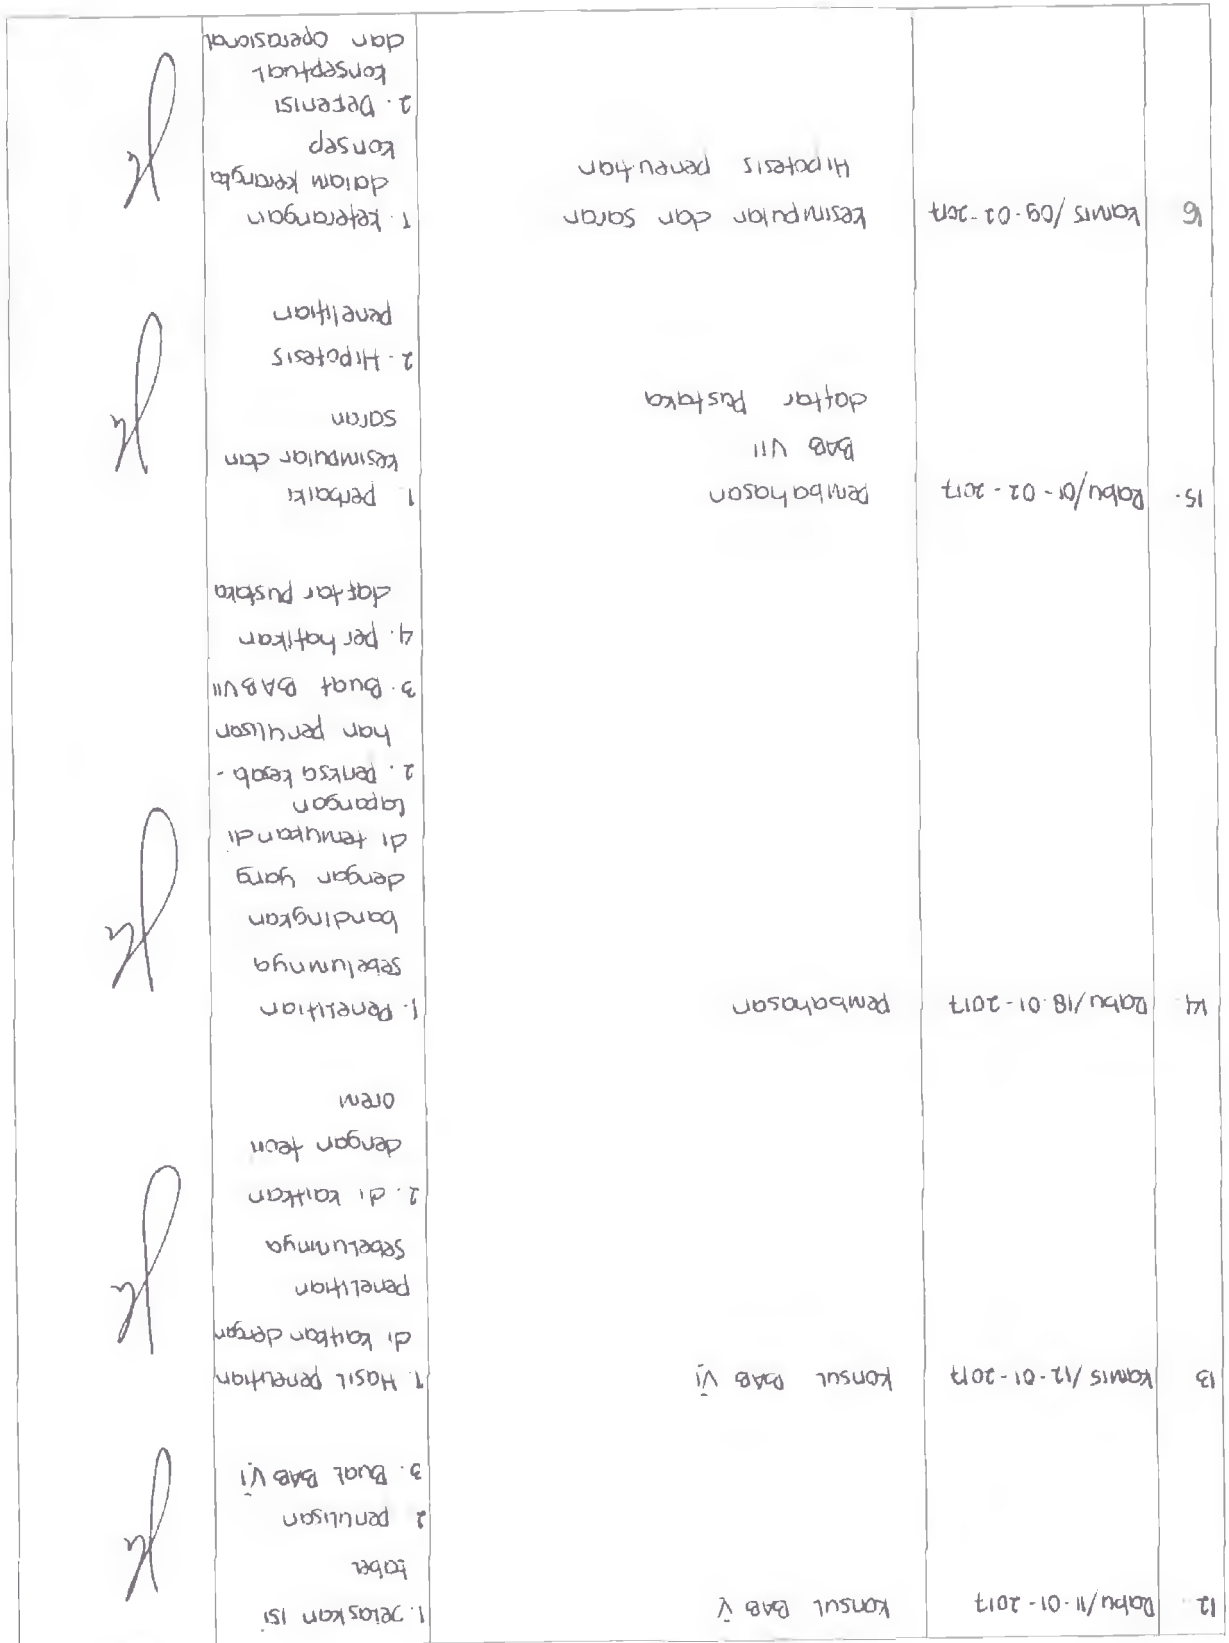 12. Rabu/11-01-2017 Konsul BAB V 1. Jelaskan isi
tabel
2 penulisan
3. Buat BAB VI
13 Kamis/12-01-2017 Konsul BAB VI 1. Hasil penelitian
di kaitkan dengan
penelitian
sebelumnya
2. di kaitkan
dengan teori
orem
14. Rabu/18-01-2017 Pembahasan 1. Penelitian
sebelumnya
bandingkan
dengan yang
di temukan di
lapangan
2. Periksa kesab-
han penulisan
3. Buat BAB VII
4. perhatikan
daftar pustaka
15. Rabu/01-02-2017 Pembahasan 1 perbaiki
BAB VII kesimpulan dan
daftar Pustaka saran
2. Hipotesis
penelitian
16 Kamis/09-02-2017 kesimpulan dan saran 1. keterangan
Hipotesis penelitian dalam kerangka
konsep
2. Defenisi
konseptual
dan operasional